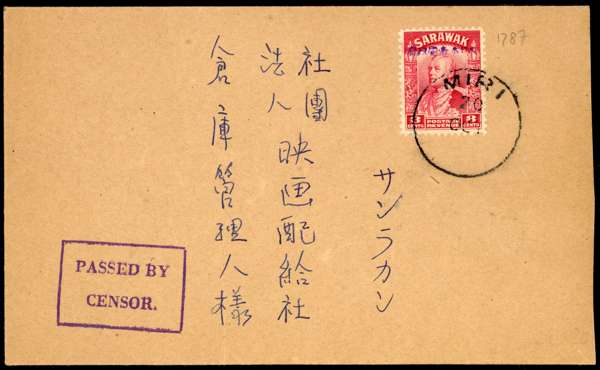 SARAWAK
8 CENTS
POSTAGE
REVENUE
8 CENTS
MIRI
20
サンラカン
社團
法人
映画配給社
倉庫管理人様
PASSED BY
CENSOR.